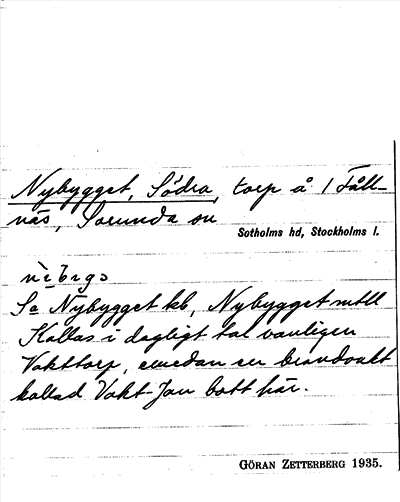 Nybygget, Södra, torp å 1 Fåll-
näs, Sorunda sn
Sotholms hd, Stockholms l.
Sa Nybygget kb, Nybygget mtll
Kallas i dagligt tal vanligen
Vakttorp, emedan en brandvakt
kallad Vakt-Jan bott här.
GÖRAN ZETTERBERG 1935.